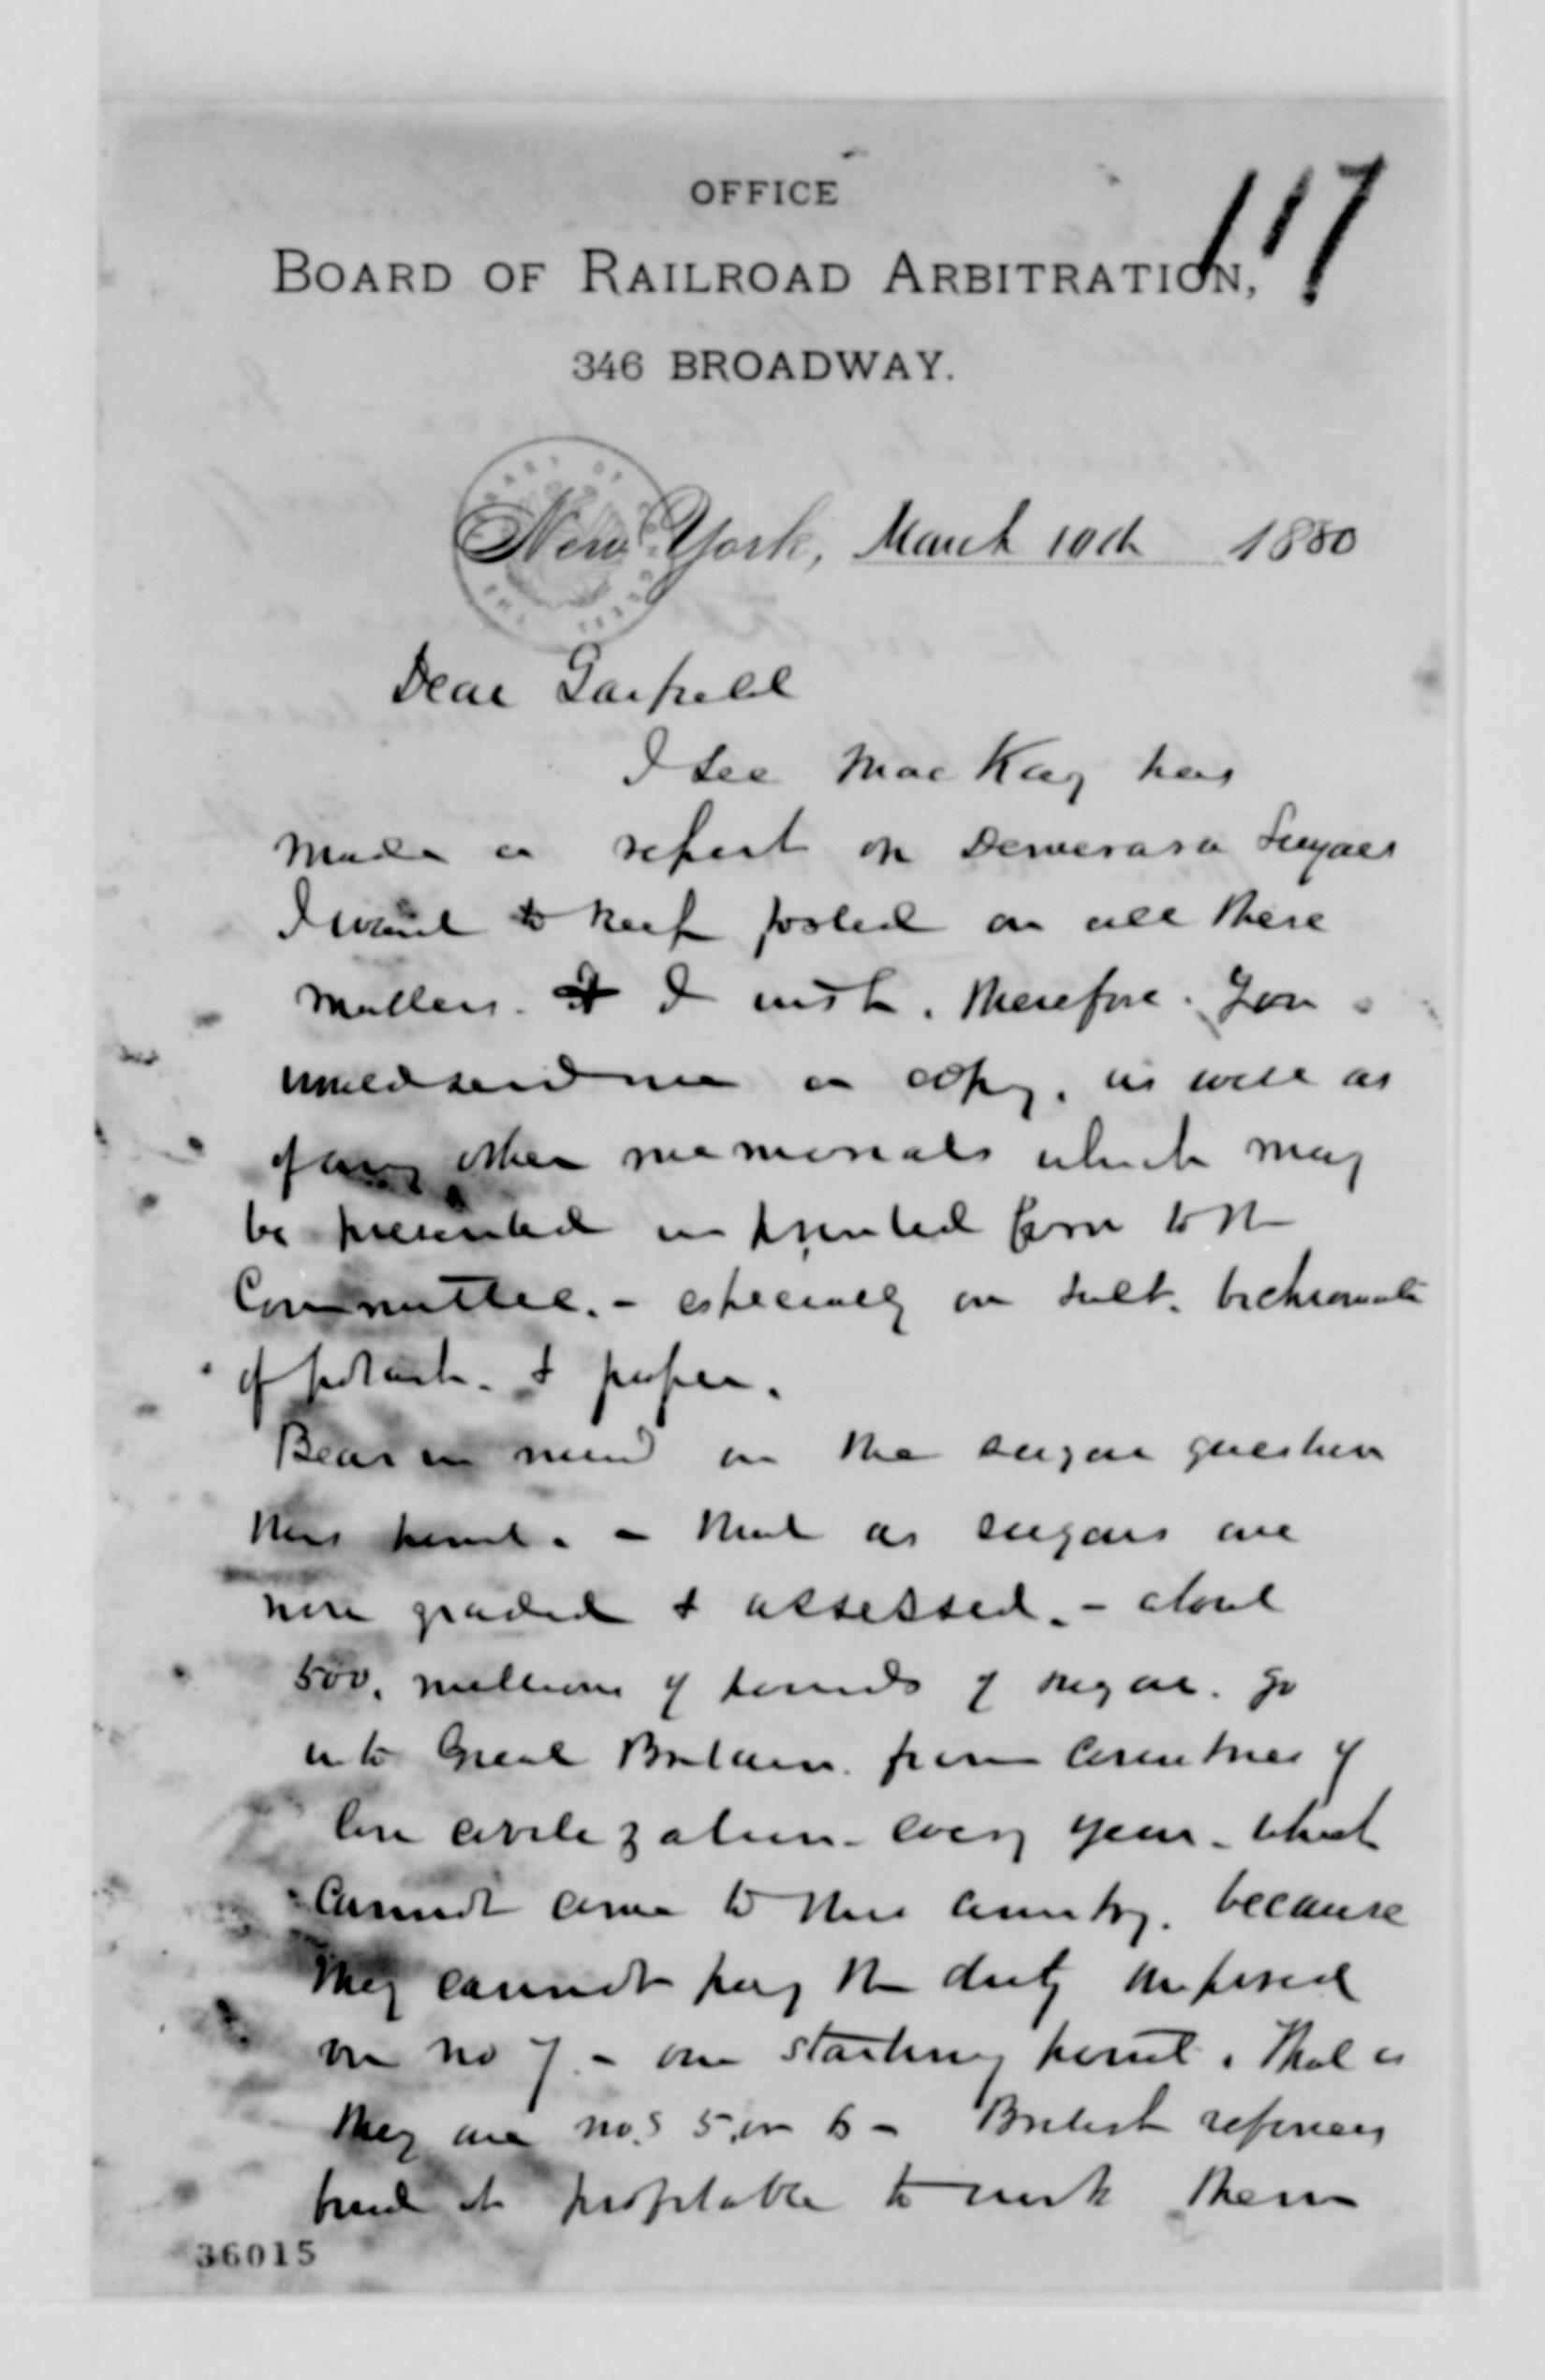 117
OFFICE
BOARD OF RAILROAD ARBITRATION,
346 BROADWAY.
New York, March 10th 1880
Dear Garfield
I see MacKay has
made a report on Demerara Sugars
I want to keep posted on all these
matters. I wish, therefore. you
would send me a copy, as well as
of any other memorials which may
be presented in printed form to the
Committee. - especially on salt. bichromate
of potash. & paper.
Bear in mind on the sugar question
this point. - that as sugars are
now graded & assessed. - about
500, millions of pounds of sugar. go
into Great Britain. from countries of
low civilization - every year - which
cannot come to this country. because
they cannot pay the duty imposed
on no 7. - our starting point. That is
they are no.s 5, or 6 - British refiners
find it profitable to work them
36015